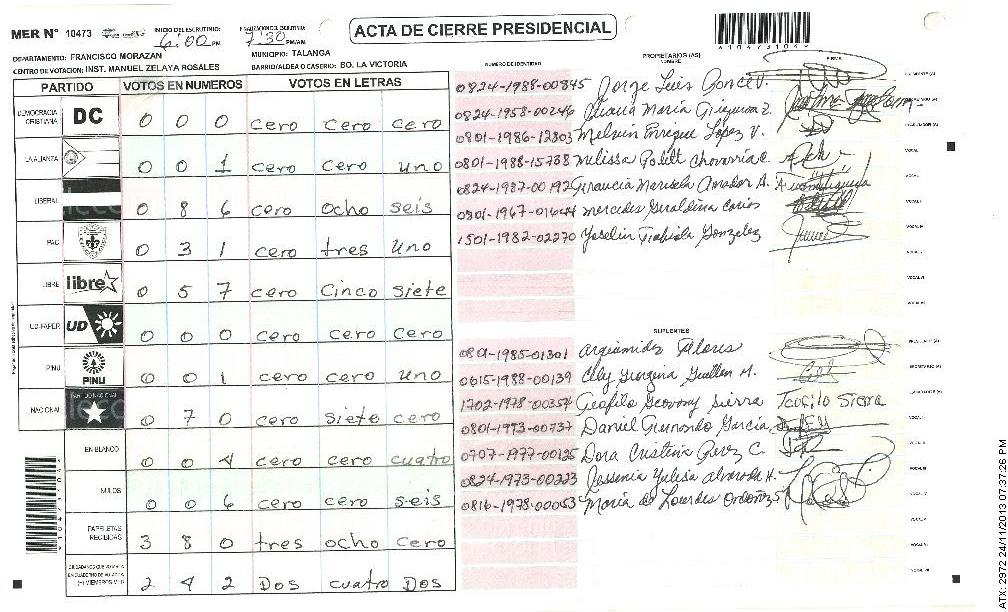 ACTA DE CIERRE PRESIDENCIAL
MER N° 10473 INICIO DEL ESCRUTINIO: 6:00 PM FINALIZACION DEL ESCRUTINIO: 7:30 PM/AM
*10473104*
DEPARTAMENTO: FRANCISCO MORAZAN MUNICIPIO: TALANGA
CENTRO DE VOTACION: INST. MANUEL ZELAYA ROSALES BARRIO/ALDEA O CASERIO: BO. LA VICTORIA
PARTIDO VOTOS EN NUMEROS VOTOS EN LETRAS
DEMOCRACIA CRISTIANA DC 0 0 0 cero cero cero
LA ALIANZA 0 0 1 cero cero uno
LIBERAL 0 8 6 cero ocho seis
PAC 0 3 1 cero tres uno
LIBRE libre 0 5 7 cero cinco siete
UD-FAPER UD 0 0 0 cero cero cero
PINU PINU 0 0 1 cero cero uno
NACIONAL 0 7 0 cero siete cero
EN BLANCO 0 0 4 cero cero cuatro
NULOS 0 0 6 cero cero seis
PAPELETAS RECIBIDAS 3 8 0 tres ocho cero
2 4 2 Dos cuatro Dos
*10473104*
NUMERO DE IDENTIDAD PROPIETARIOS (AS) NOMBRE FIRMA
0824-1988-00845 Jorge Luis Ponce V.
0824-1958-00246 Maria
0801-1986-12803 Melvin Enrique Lopez V.
0801-1988-15738 Melissa
0824-1987-00192 Marisela Amador A.
0801-1967-01644 Mercedes Geraldina
1501-1982-02270 Yoselin Fabiola Gonzalez
SUPLENTES
0801-1985-01301 Argiamidz Flores
0615-1988-00139 Cely Georgina Guillen M.
1702-1978-00354 Teofilo Geovony Sierra Teofilo Sierra
0801-1973-00737 Daniel Garcia
0707-1977-00125 Dora Cristina Perez C.
0824-1973-00223 Yessenia Yulisa Alvarado H.
0816-1978-00053 Maria de Lourdes Ordoñez S
ATX: 2972 24/11/2013 07:37:26 PM